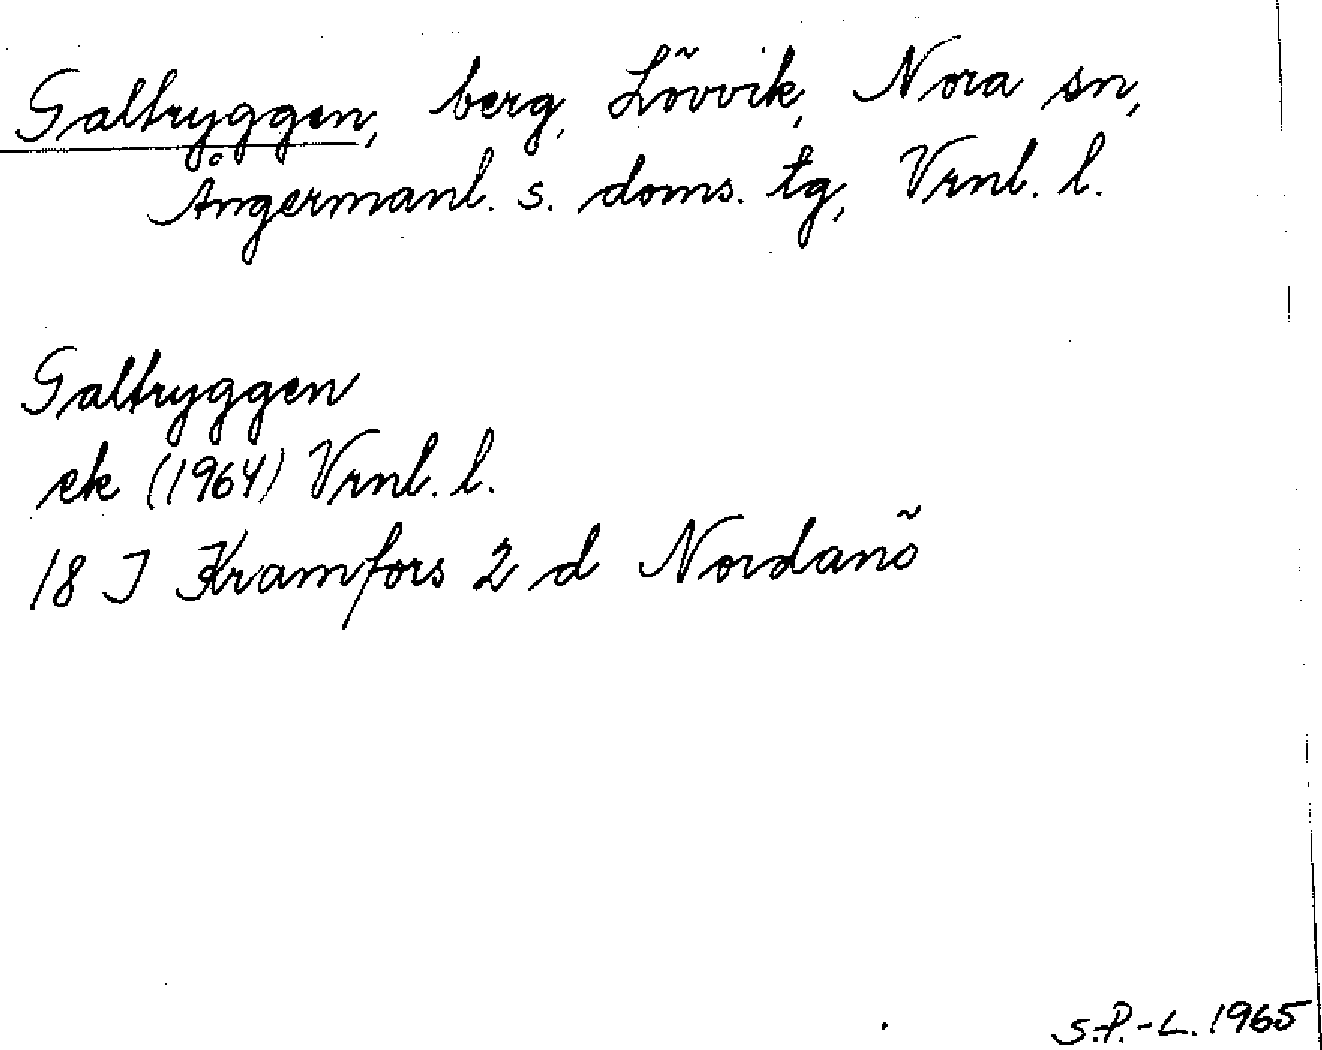 Galtryggen, berg, Lövvik, Nora sn,
Ångermanl. s. doms. tg, Vrnl. l.
Galtryggen
ek (1964) Vrnl. l.
18 J Kramfors 2 d Nordanö
S.P.-L. 1965